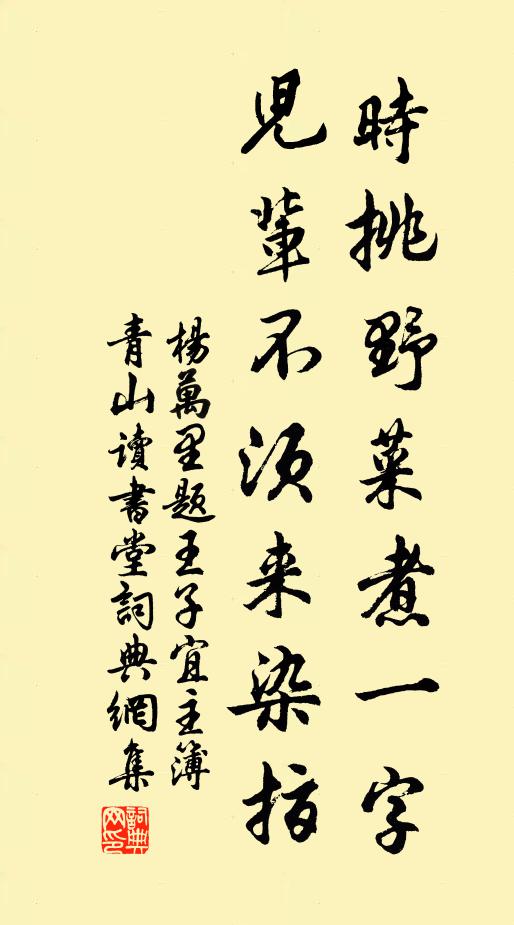 時挑野菜煮一字
兒輩不須来染指
楊萬里題王子宜主簿
青山讀書堂詞典網集
詞典网印